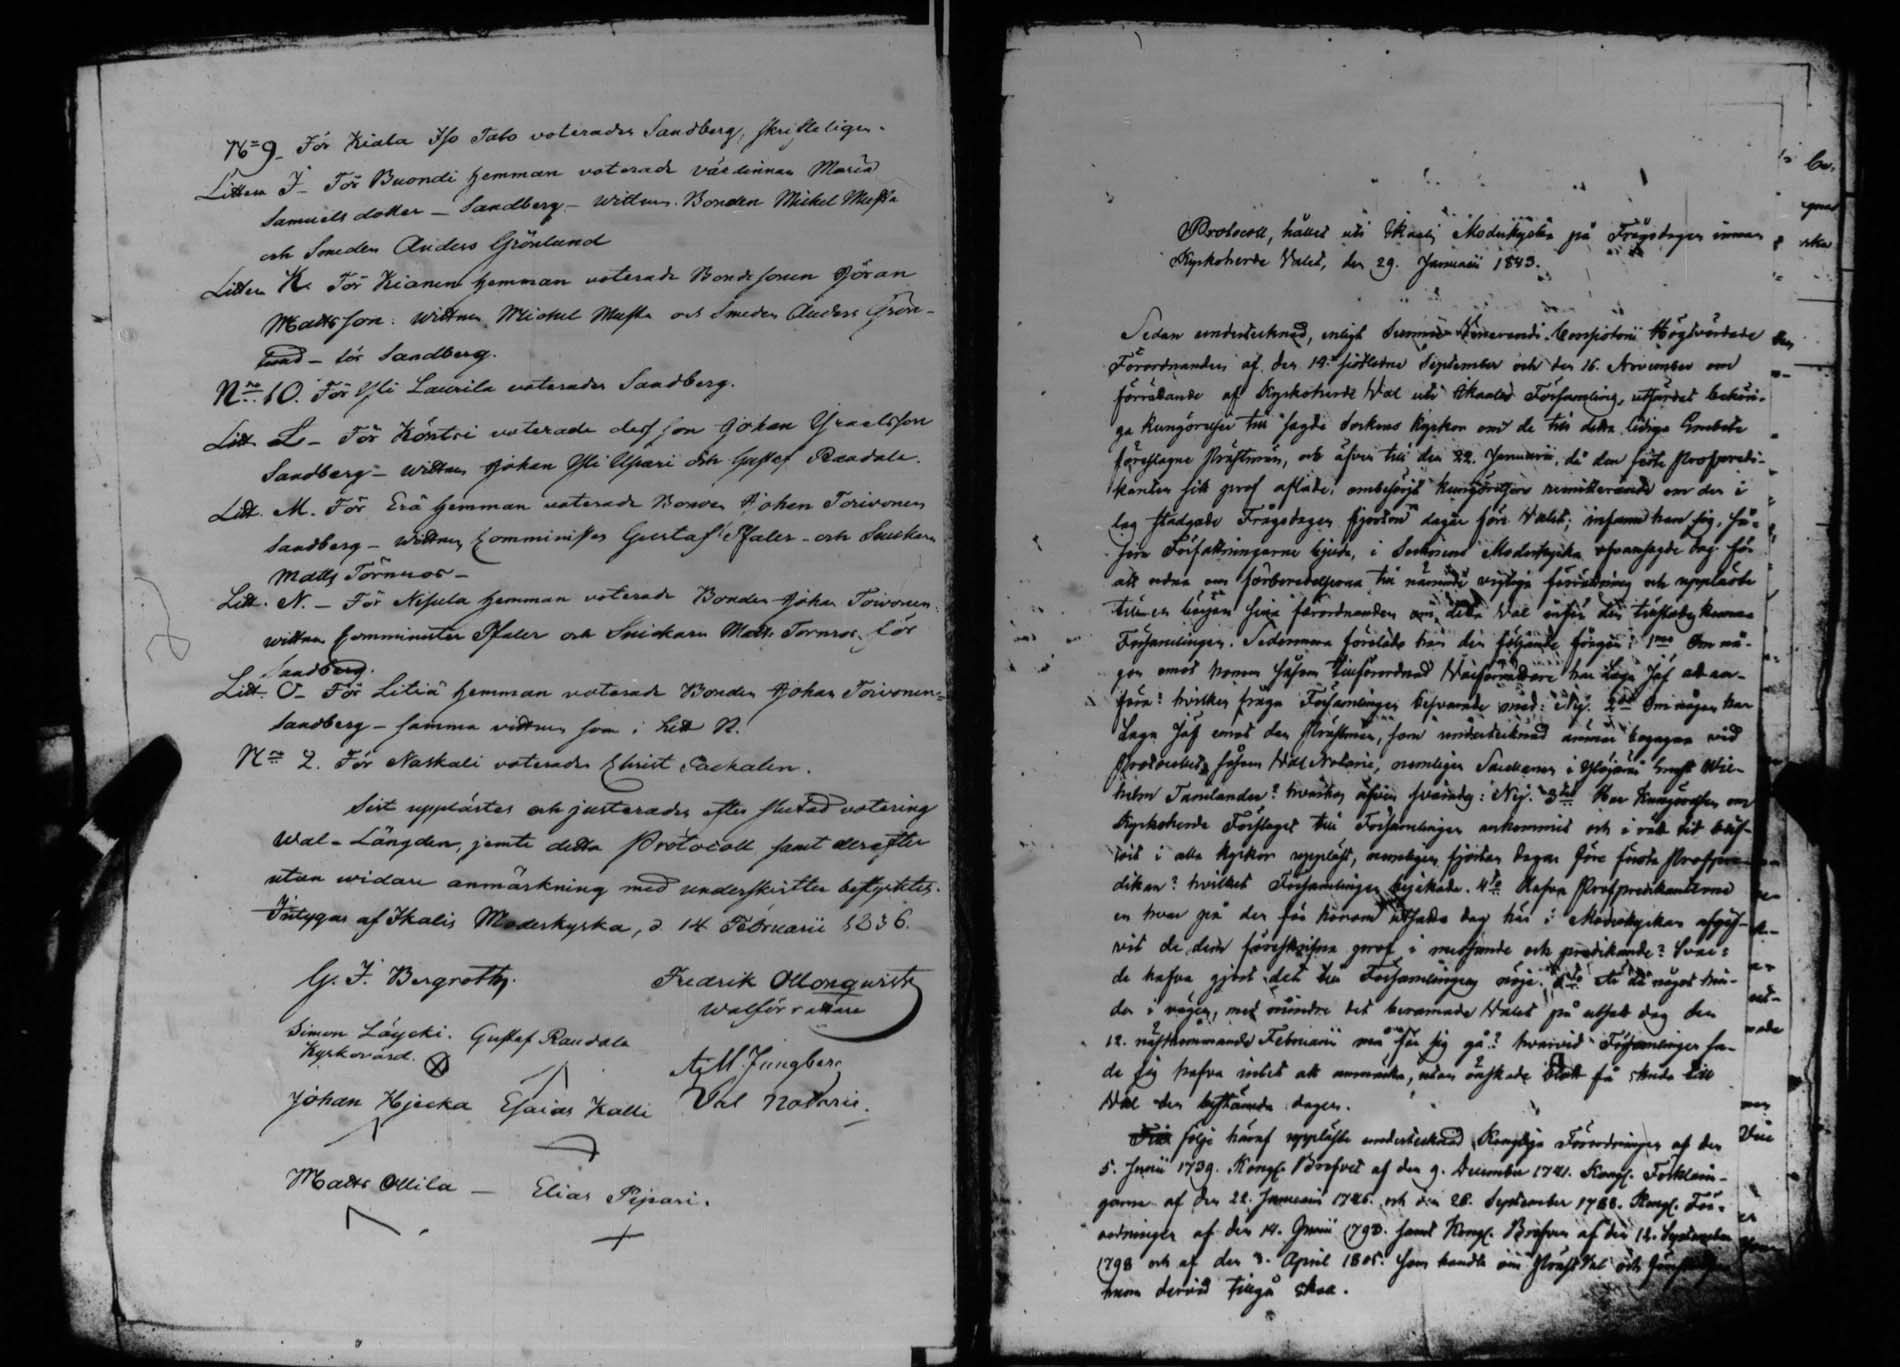 No 9 – För Kiala Iso Talo voterades Sandberg, skrifteligen.
Littera J – För Buondi hemman voterade värdinnan Maria
Samuels dotter – Sandberg – wittnen. Bonden Michel
och Smeden Anders Grönlund
Littera K. För Kianen hemman voterade Bondesonen Göran
Mattsson. wittnen Michel och Smeden Anders Grön-
lund – för Sandberg.
No 10. För Yli Laurila voterades Sandberg.
Litt. L – För Köntri voterade dess son Johan Israelsson
Sandberg – wittnen Johan Yli och Gustaf Raudala.
Litt. M. För Erä hemman voterade Bonden Johan Toivonen
Sandberg – wittnen Comminister Gustaf Pfaler – och Snickaren
Matts Törnros –
Litt. N. – För Nisula hemman voterade Bonden Johan Toivonen
wittnen Comminister Pfaler och Snickaren Matts Törnros, för
Sandberg.
Litt. O – För Litiä hemman voterade Bonden Johan Toivonen –
Sandberg – samma vittnen som i Litt N.
No 2. För Naskali voterades Christ. Packalen.
Sist upplästes och justerades efter slutad votering
Wal-Längden, jemte detta Protocoll samt derefter
utan widare anmärkning med underskrifter bestyrktes.
Intygas af Ikalis Moderkyrka, d. 14 Februarii 1836.
G. F. Bergroth. Fredrik
Walförrättare
Simon Läycki. Gustaf Raudala
Kyrkovärd. A. M. Jungberg
Johan Esaias Kalli Val Notarie.
Matts Ollila – Elias Pipari.
Protocoll, hållet uti Ikalis Moderkyrka på Frågodagen innan
Kyrkoherde Valet, den 29. Januarii 1843.
Sedan undertecknad, enligt Högvördade
Förordnanden af den 14. sistledne September och den 16. November om
förrättande af Kyrkoherde Val uti Ikalis Församling, utfärdat behöri-
ga kungörelser till sagde Sockens Kyrkor om de till detta lediga Embete
föreslagne Prästmän, och äfven till den 22. Januarii, då den siste Profpredi-
kanten sitt prof aflade, ombesörjt kungörelsens om den i
lag stadgade Frågodagen fjorton dagar före Valet; infann han sig, så-
som Författningarne bjuda, i Sockens Moderkyrka ofvansagde dag för
att ordna om förberedelserna till nämnde vigtiga förrättning och uppläste
sina förordnanden om detta Val inför den
Församlingen. Sedermera förelade han den följande frågor: 1mo Om nå-
gon emot honom såsom tillförordnad Valförrättare har Laga Jäf att an-
föra? hvilken fråga Församlingen besvarade med: Nej. 2do Om någon har
Laga Jäf emot den Prästman, som undertecknad ämnar begagna vid
Protocollet såsom Val Notarie, nemligen i Ylöjärvi Ernst Wil-
helm Tamlander? hvartill äfven svarades: Nej. 3tio Har Kungörelsen om
Kyrkoherde Förslaget till Församlingen ankommit och i rätt tid blif-
vit i alla kyrkor uppläst, nemligen fjorton dagar före första Profpre-
dikan? hvilket Församlingen bejakade. 4to Hafva Profpredikanterne
en hvar på den för honom utsatta dag här i Moderkyrkan aflagt
de dem föreskrifna prof i messande och predikande? Svar:
de hafva gjort det till Församlingens nöje. 5to Är då något hin-
der i vägen, med mindre det beramade Valet på utsatt dag den
12. nästkommande Februarii må för sig gå? hvarvid Församlingen sa-
de sig hafva intet att anmärka, utan önskade blott få skrida till
Val den bestämda dagen.
följe häraf uppläste undertecknad Kongliga Förordningen af den
5. Junii 1739. Kongl. Brefvet af den 9. December 1741. Kongl. Förklarin-
garne af den 22. Januarii 1746. och den 26. September 1766. Kongl. För-
ordningen af den 14. Junii 1793. samt Kongl. Brefven af den 12. September
1798 och af den 3. April 1805. som handla om Präst Val och huru
dervid tillgå skall.